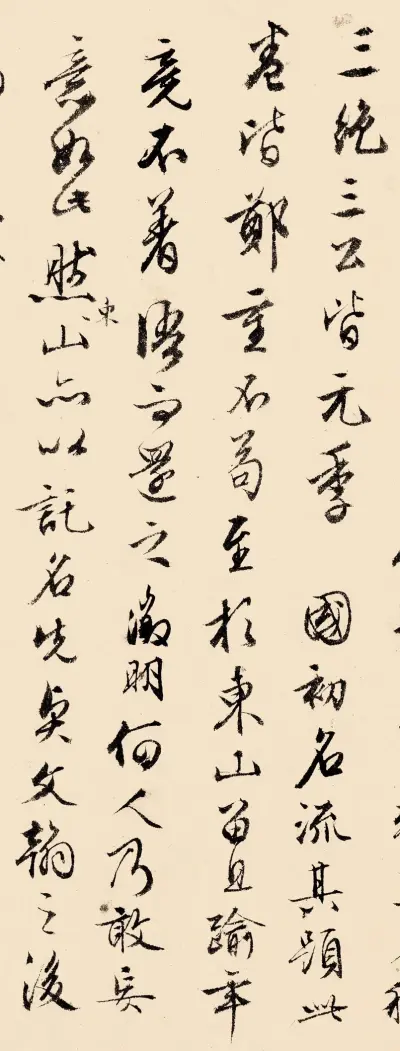 三絶三公皆元季 國初名流其題此
卷皆鄭重不苟至於東山留且踰年
竟不着語而還之徵明何人乃敢妄
意如此然東山亦以託名先矣文翰之後